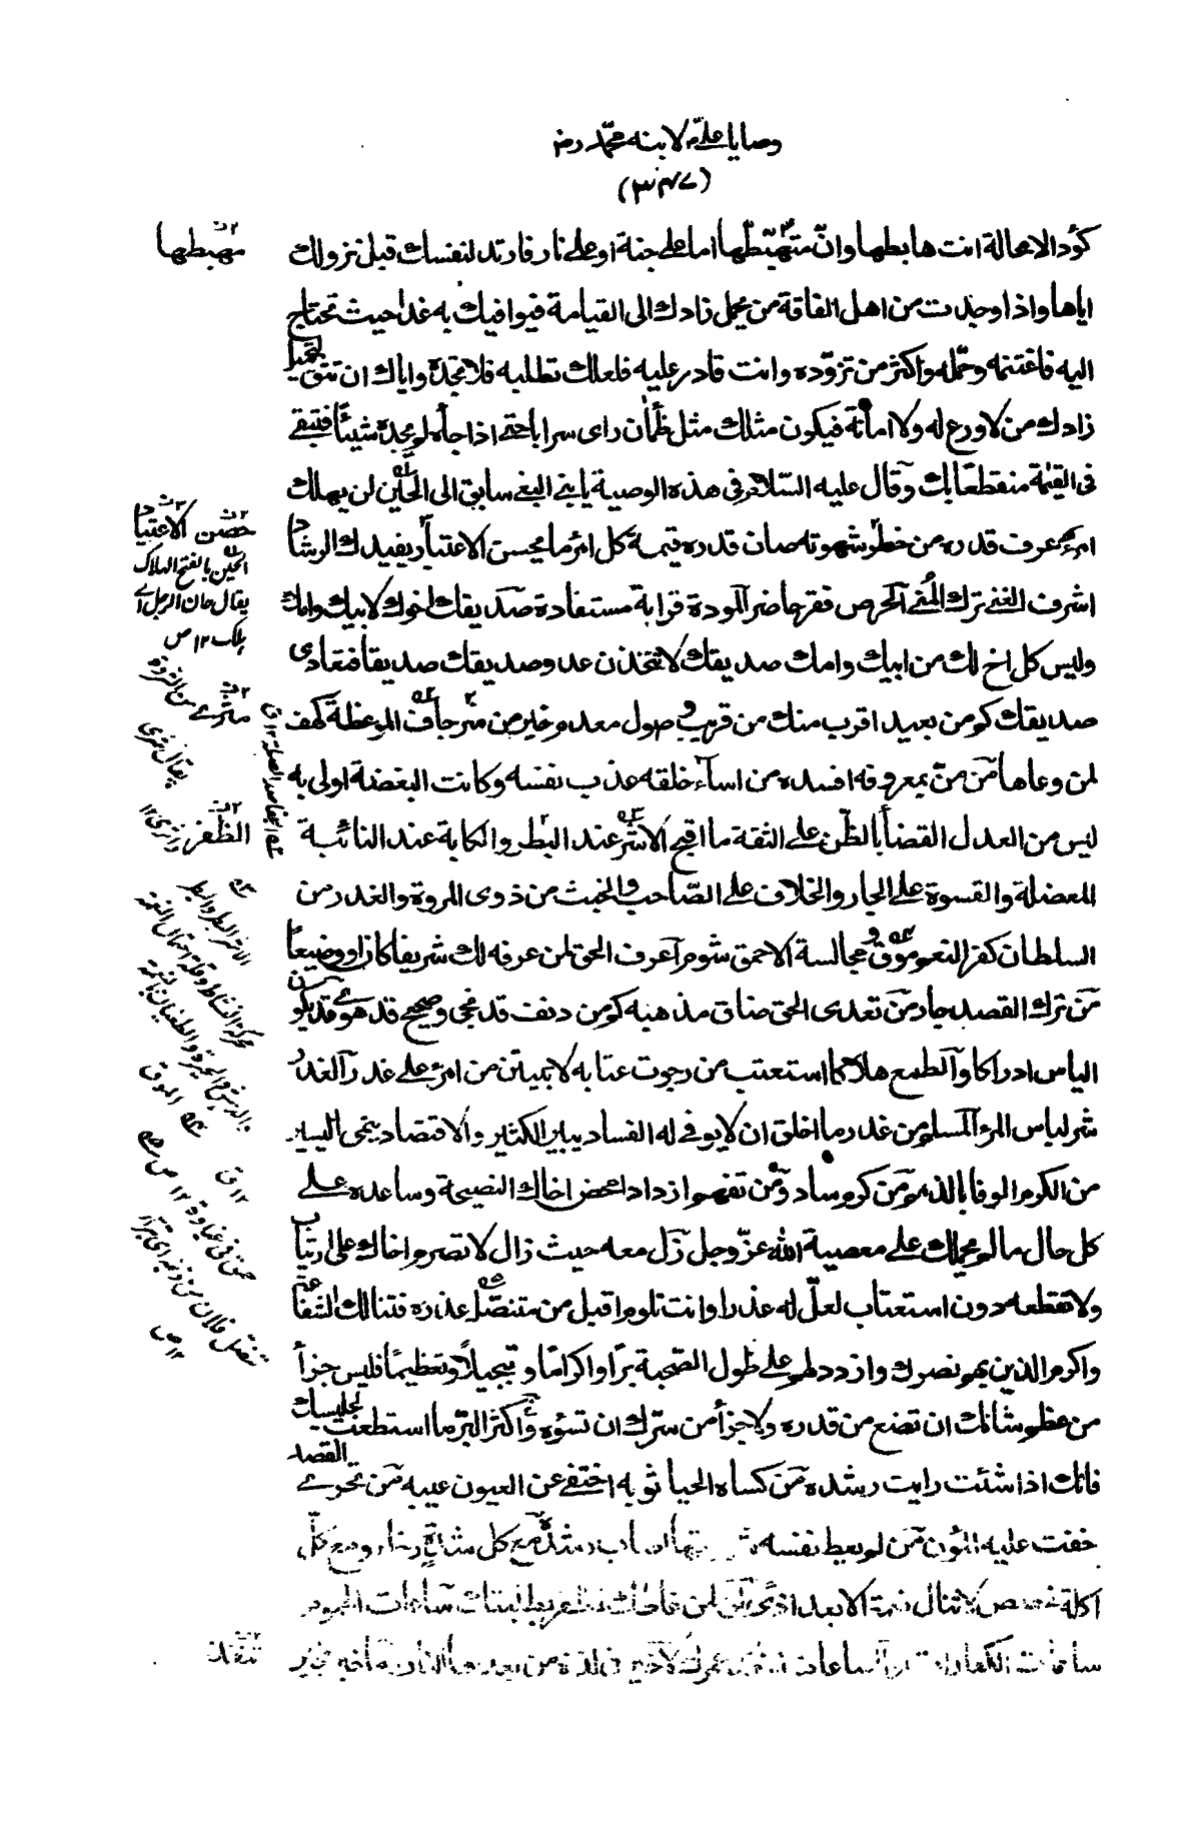 وصايا علىؑ لابنه محمّد رضہ
(٣٤٧)
كؤد الامحالة انت هابطها وانّ متهبّطها اما على جنة او على نار فارتد لنفسك قبل نزولك
اياها واذا وجدت من اهل الفاقة من يحمل زادك الى القيامة فيوافيك به غدا حيث تحتاج
اليه فاغتنمه وحمّله واكثر من تزوّده وانت قادر عليه فلعلك تطلبه فلا تجدہ واياك ان تثق لتحميل
زادك من لا ورع له ولا امانة فيكون مثلك مثل ظمأن راى سرابا حتى اذا جاءه لم يجدہ شيئا فتبقى
فى القيمة منقطعا بك وقال عليه السّلام فى هذه الوصية يا بنى البغى سابق الى الحَيْن لن يهلك
امرء عرف قدره من حظر شهوته صان قدره قيمة كل امرء ما يحسن الاعتبار يفيدك الرشاد
اشرف الغنى ترك المُنى الحرص فقر حاضر المودة قرابة مستفادة صديقك اخوك لابيك وامك
وليس كل اخ لك من ابيك وامك صديقك لا تتخذن عدو صديقك صديقا فتعادى
صديقك كم من بعيد اقرب منك من قريب وصول معدم خير من مثر جاف الموعظة كهف
لمن وعاها من منّ بمعروفه افسده من اساء خلقه عذب نفسه وكانت البغضة اولى به
ليس من العدل القضاء بالظّن على الثقة ما اقبح الاشر عند البطر والكابة عند النائبة
المعضلة والقسوة على الجار والخلاف على الصّاحب والخبث من ذوى المروة والغدر من
السلطان كفر النعم موق ومجالسة الاحمق شوم اعرف الحق لمن عرفه لك شريفا كان او وضيعا
من ترك القصد جار من تعدى الحق ضاق مذهبه كم من دنف قد نجى وصحيح قد هوى قد يكون
الياس ادراكا والطمع هلاكا استعتب من رجوت عتابه لا تبيتن من امرء على غدر الغدر
شر لباس المرء المسلم من غدر ما اخلق ان لا يوفى له الفساد يبير الكثير والاقتصاد ينمى اليسير
من الكرم الوفا بالذمم من كرم ساد ومن تفهم ازداد امحض اخاك النصيحة وساعده على
كل حال ما لم يحملك على معصية الله عزّ وجل زل معه حيث زال لا تصرم اخاك على ارتياب
ولا تقطعه دون استعتاب لعلّ له عذرا وانت تلوم اقبل من متنصّل عذره فتنالك الشفاعة
واكرم الذين بهم نصرك وازدد لهم على طول الصّحبة برّا واكراما وتبجيلا وتعظيما فليس جزأ
من عظم شانك ان تضع من قدره ولا جزأ من سرّك ان تسؤه واكثر البرّ ما استطعت لجليسك
فانك اذا شئت رايت رشده من كساه الحيا ثوبه اختفى عن العيون عيبه من تحرى القصد
خفت عليه المؤن من لم يعط نفسه شهوتها اصاب رشده مع كل شدة رخاء ومع كلّ
اكلة غصص لا تنال نعمة الا بعد اذى لن لمن غاظك تظفر بطلبتك ساعات الهموم
ساعات الكفارات والساعات تنفد عمرك لا خير فى لذة من بعدها النار
مهبطها
حسن الاعتبار
الحَيْن بالفتح الهلاك
يقال حان الرجل اے
ہلك ١٢ ص
الظفر
تنفد